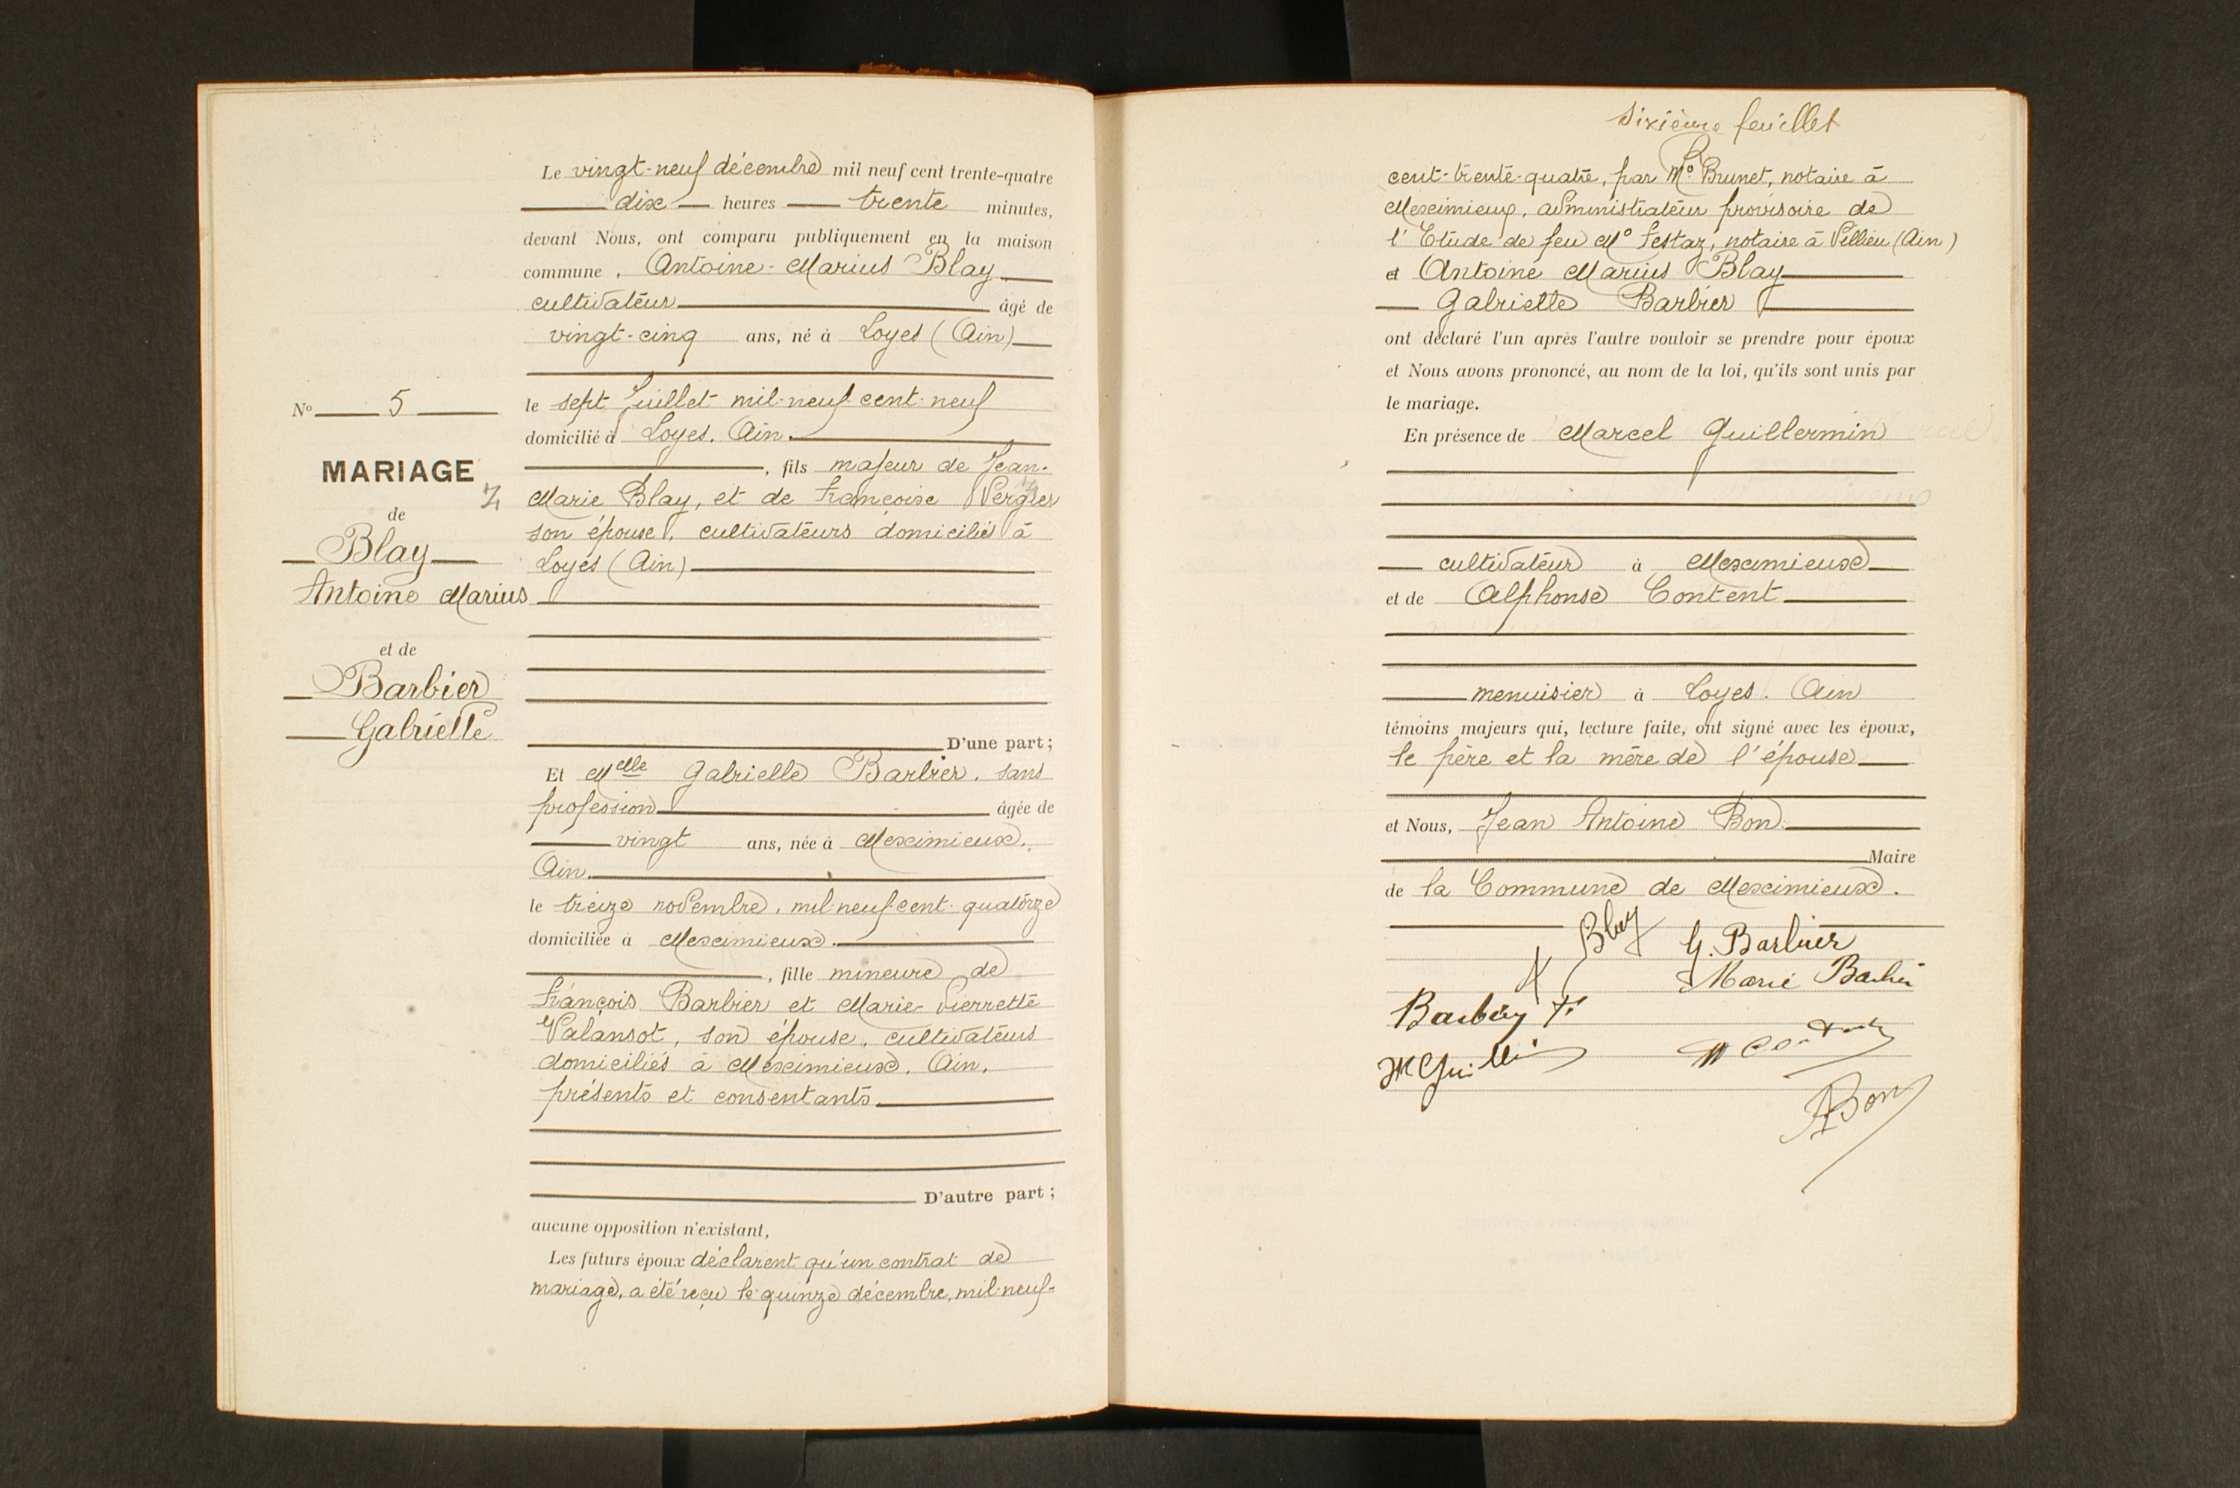 Le vingt-neuf décembre mil neuf cent trente-quatre
dix heures trente minutes,
devant Nous, ont comparu publiquement en la maison
commune, Antoine-Marius Blay
cultivateur âgé de
vingt-cinq ans, né à Loyes (Ain)
le sept Juillet mil-neuf-cent-neuf
domicilié à Loyes. Ain.
, fils majeur de Jean-
Marie Blay, et de Françoise Vergier
son épouse, cultivateurs domiciliés à
Loyes (Ain)
D'une part;
Et Melle Gabrielle Barbier, sans
profession âgée de
vingt ans, née à Meximieux,
Ain.
le treize novembre, mil-neuf-cent-quatorze
domiciliée à Meximieux.
, fille mineure de
François Barbier et Marie-Pierrette
Valansot, son épouse, cultivateurs
domiciliés à Meximieux. Ain.
présents et consentants
D'autre part;
aucune opposition n'existant,
Les futurs époux déclarent qu'un contrat de
mariage, a été reçu le quinze décembre, mil-neuf-
No 5
MARIAGE
de
Blay
Antoine Marius
et de
Barbier
Gabrielle
Sixième feuillet
cent-trente-quatre, par Me Brunet, notaire à
Meximieux, administrateur provisoire de
l'Etude de feu Me Festaz, notaire à Villieu (Ain)
et Antoine Marius Blay
Gabrielle Barbier
ont déclaré l'un après l'autre vouloir se prendre pour époux
et Nous avons prononcé, au nom de la loi, qu'ils sont unis par
le mariage.
En présence de Marcel Guillermin
cultivateur à Meximieux
et de Alphonse Content
menuisier à Loyes. Ain
témoins majeurs qui, lecture faite, ont signé avec les époux,
le père et la mère de l'épouse
et Nous, Jean Antoine Bon
Maire
de la Commune de Meximieux.
Blay G. Barbier
Marie Barbier
ABon